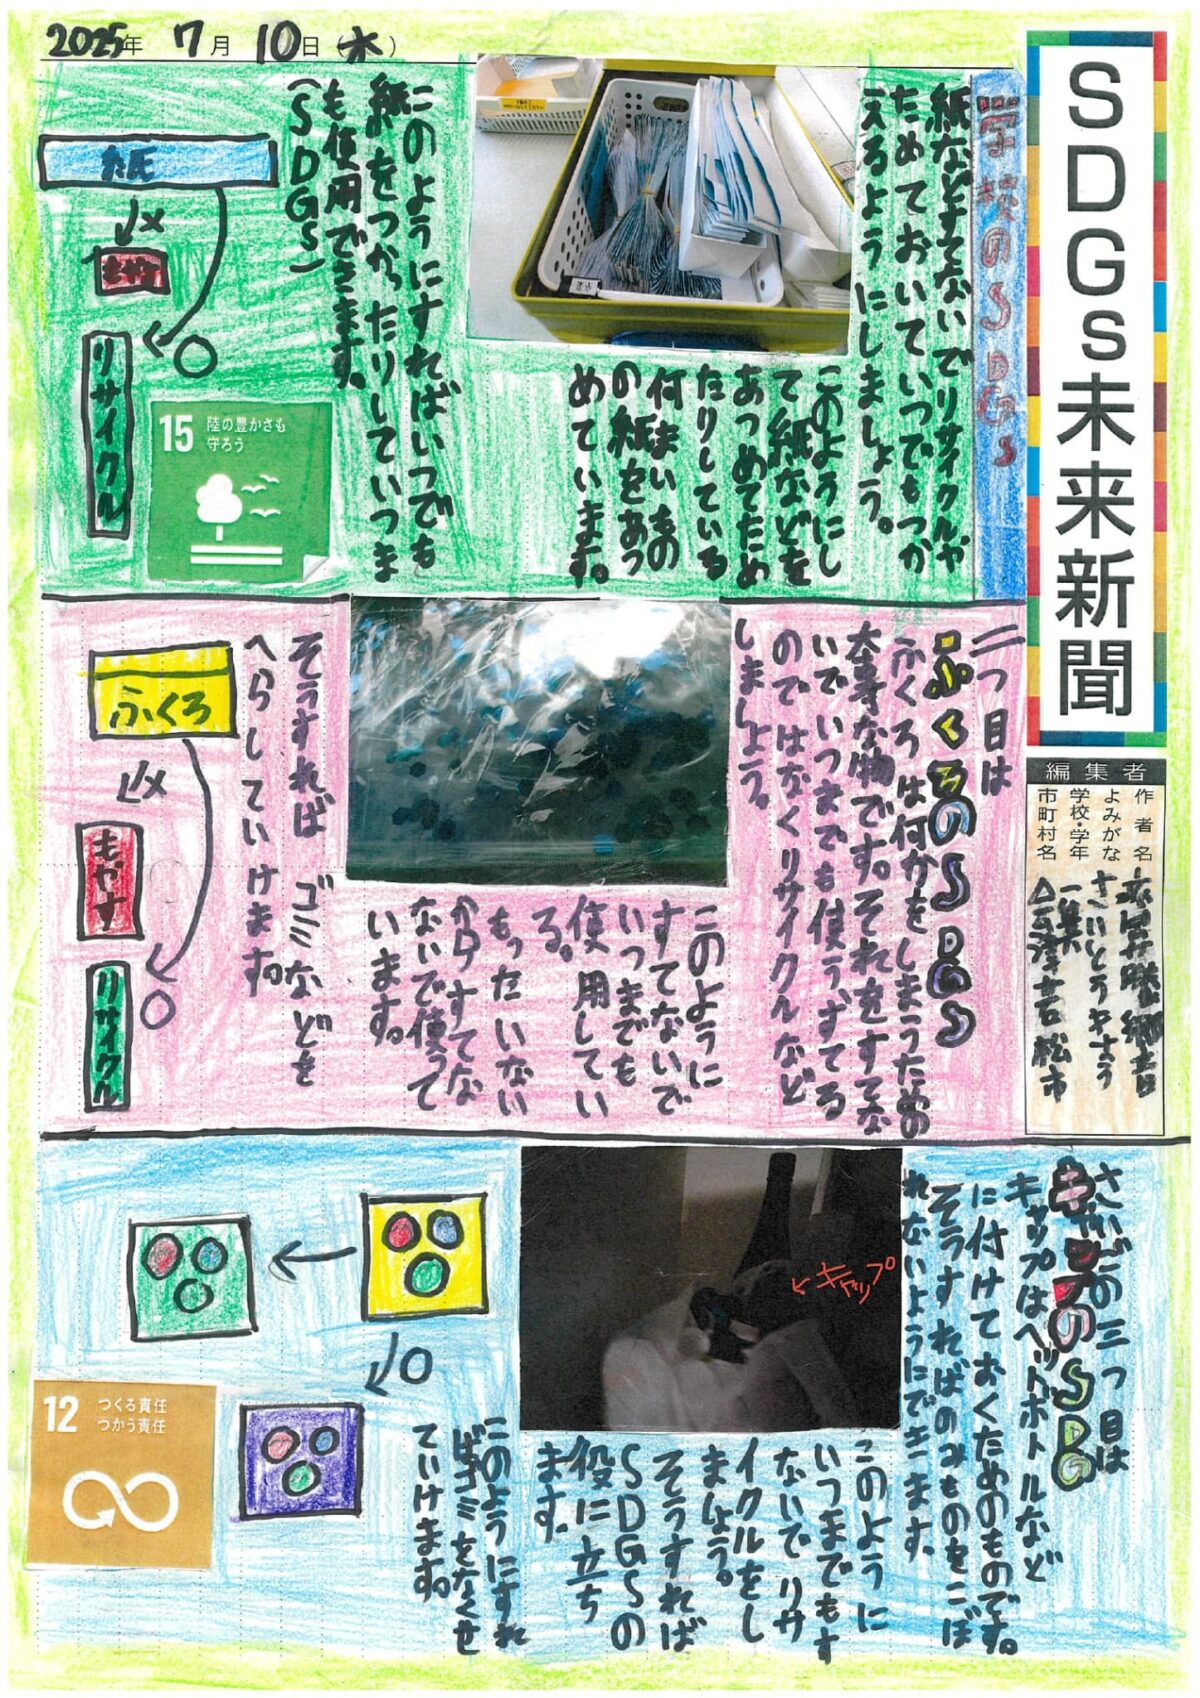 2025年 7月 10日(木)
SDGs未来新聞
編集者
作者名
よみがな さいとう
学校・学年 一箕
市町村名 会津若松市
学校のSDGs
紙などすてないでリサイクルや
ためておいていつでもつか
えるようにしましょう。
このようにし
て紙などを
あつめてため
たりしている
何まいもの
の紙をあつ
めています。
このようにすればいつでも
紙をつかったりしていつま
も使用できます。
(SDGs)
紙
×
もやす
○
リサイクル
15 陸の豊かさも
守ろう
二つ目は
ふくろのSDGs
ふくろは何かをしまうための
大事な物です。それをすてな
いでいつまでも使う、すてる
のではなくリサイクルなど
しましょう。
このように
すてないで
いつまでも
使用してい
る。
もったいない
からすてな
ないで使って
います。
そうすれば ゴミなどを
へらしていけます。
ふくろ
×
もやす
○
リサイクル
さいごの三つ目は
キャップのSDG
キャップはペットボトルなど
に付けておくためのものです。
そうすればのみものをこぼ
れないようにできます。
←キャップ
このように
いつまでもす
ないで リサ
イクルをし
ましょう。
そうすれば
SDGSの
役に立ち
ます。
このようにすれ
ばゴミをなくせ
ていけます。
○
12 つくる責任
つかう責任